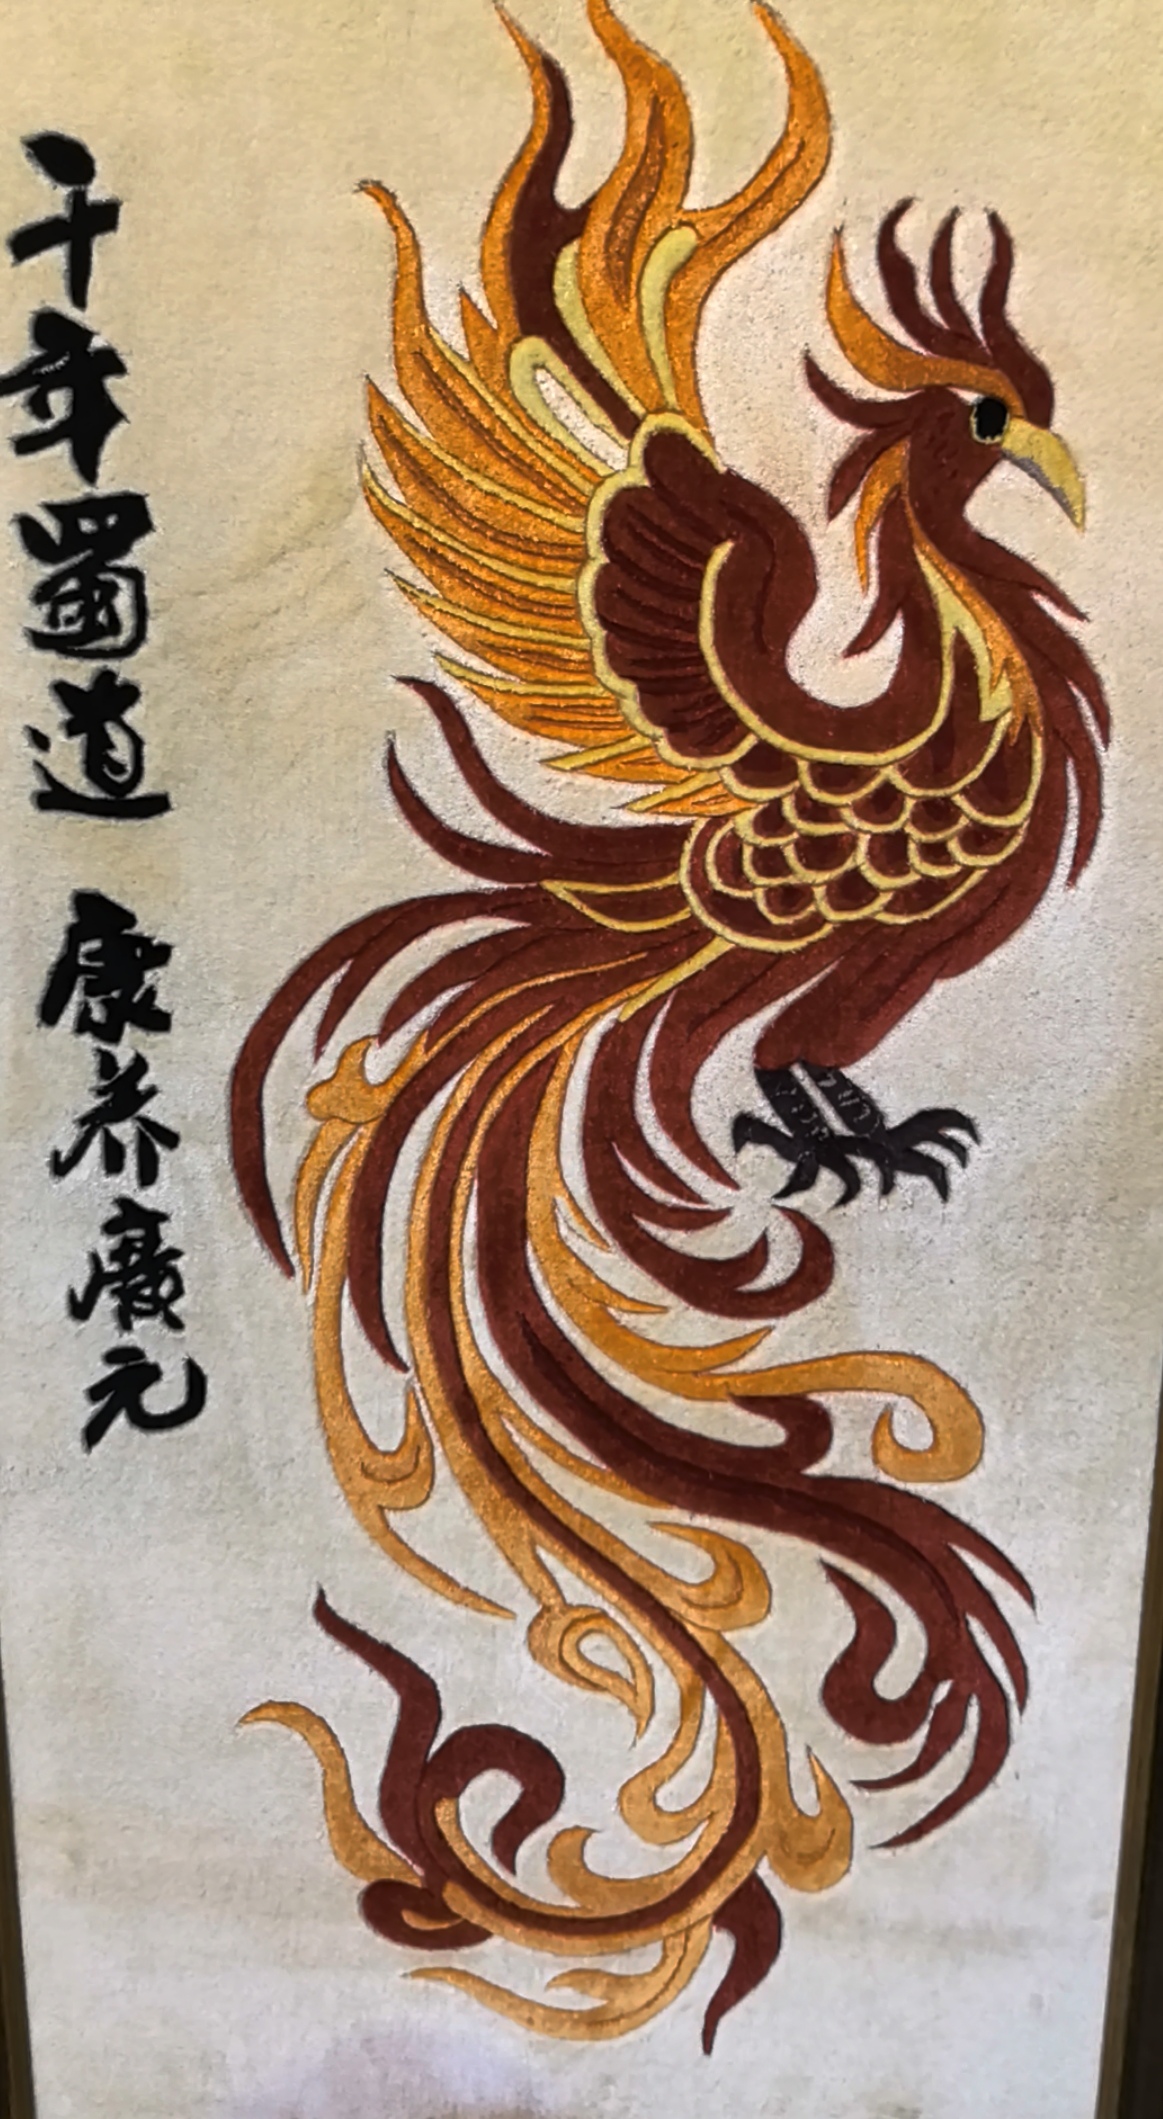 千年蜀道 康养廣元